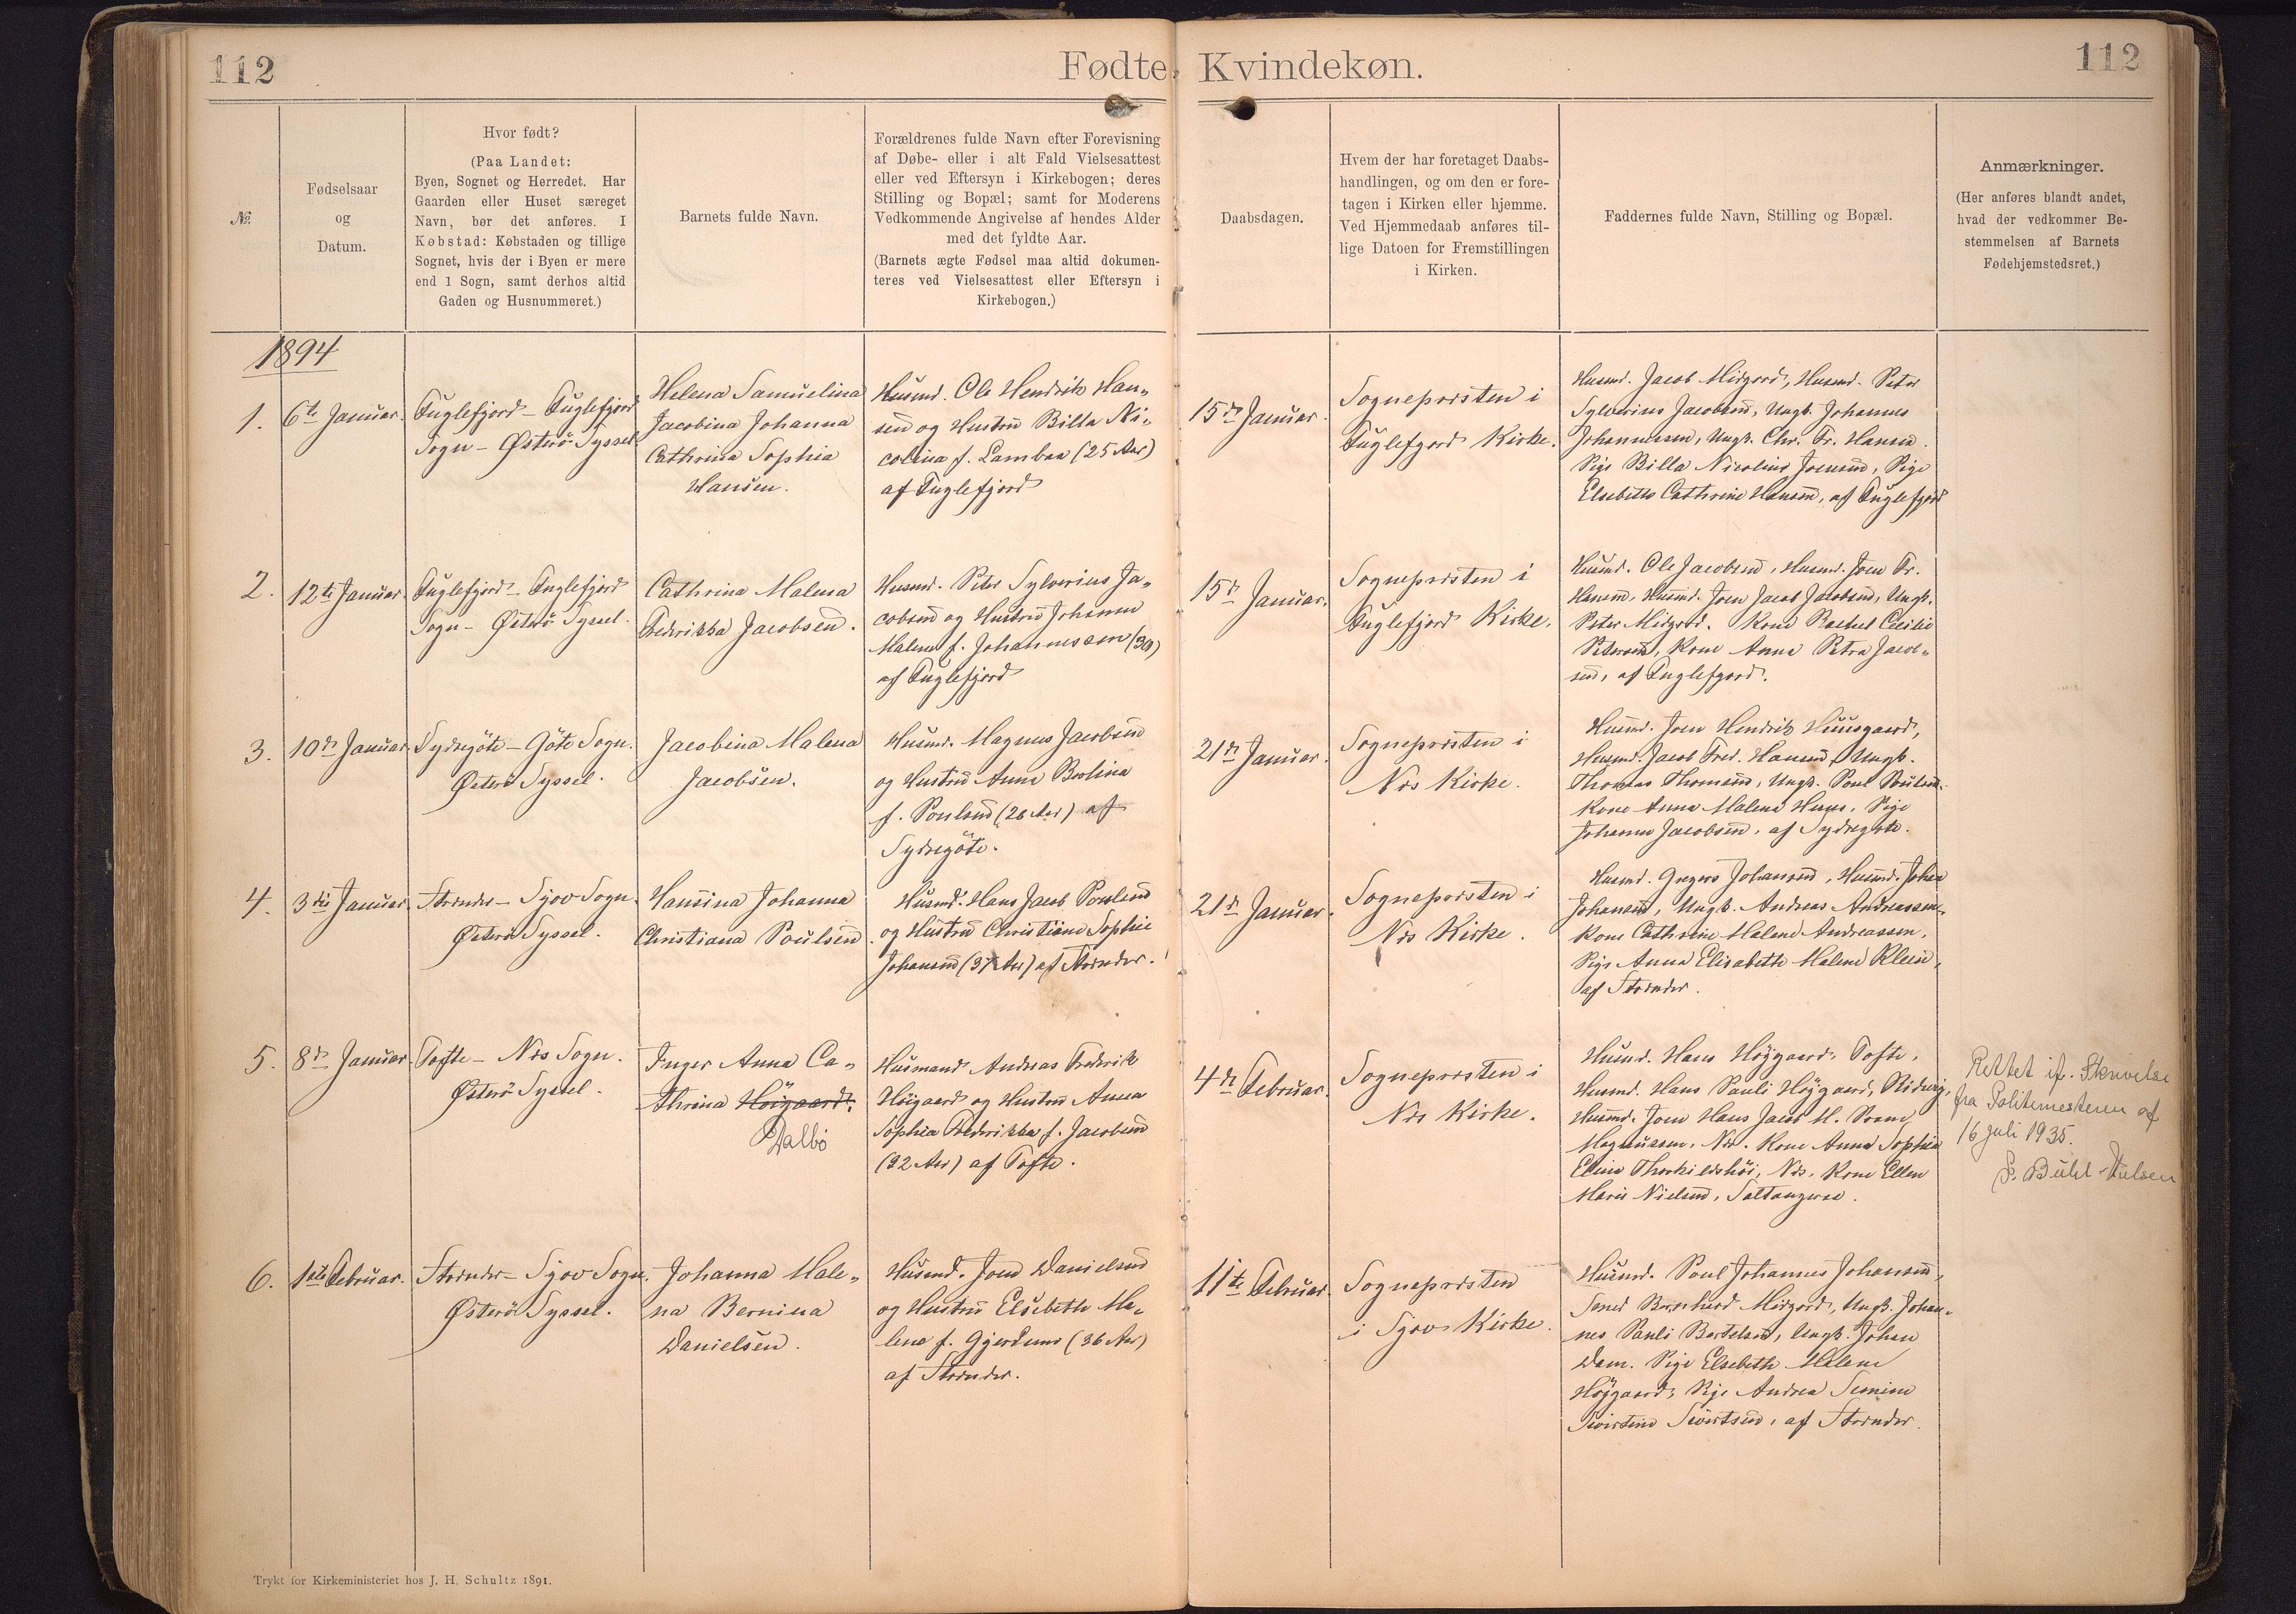 112
Fødte, Kvindekøn.
112
№
Fødselsaar
og
Datum.
Hvor født?
(Paa Landet:
Byen, Sognet og Herredet. Har
Gaarden eller Huset særeget
Navn, bør det anføres. I
Købstad: Købstaden og tillige
Sognet, hvis der i Byen er mere
end 1 Sogn, samt derhos altid
Gaden og Husnummeret.)
Barnets fulde Navn.
Forældrenes fulde Navn efter Forevisning
af Døbe- eller i alt Fald Vielsesattest
eller ved Eftersyn i Kirkebogen; deres
Stilling og Bopæl; samt for Moderens
Vedkommende Angivelse af hendes Alder
med det fyldte Aar.
(Barnets ægte Fødsel maa altid dokumen-
teres ved Vielsesattest eller Eftersyn i
Kirkebogen.)
Daabsdagen.
Hvem der har foretaget Daabs-
handlingen, og om den er fore-
tagen i Kirken eller hjemme.
Ved Hjemmedaab anføres til-
lige Datoen for Fremstillingen
i Kirken.
Faddernes fulde Navn, Stilling og Bopæl.
Anmærkninger.
(Her anføres blandt andet,
hvad der vedkommer Be-
stemmelsen af Barnets
Fødehjemstedsret.)
1894
1.
6te Januar.
Fuglefjord - Fuglefjord
Sogn - Østerö Syssel
Helena Samuelina
Jacobina Johanna
Cathrina Sophia
Hansen.
Husmd. Ole Hendrik Han-
sen og Hustru Billa Ni-
colina f. Lambaa (25 Aar)
af Fuglefjord
15de Januar.
Sognepræsten i
Fuglefjord Kirke.
Husmd. Jacob Midgord, Husmd. Peter
Sylverius Jacobsen, Ungk. Johannes
Johannesen, Ungk. Chr. Fr. Hansen.
Pige Billa Nicoline Joensen, Pige
Elsebeth Cathrine Hansen, af Fuglefjord
2.
12te Januar.
Fuglefjord - Fuglefjord
Sogn - Østerö Syssel.
Cathrina Malena
Fredrikka Jacobsen.
Husmd. Peter Sylverius Ja-
cobsen og Hustru Johanne
Malene f. Johannessen (30)
af Fuglefjord
15de Januar.
Sognepræsten i
Fuglefjord Kirke.
Husmd. Ole Jacobsen, Husmd. Joen Fr.
Hansen, Husmd. Joen Jacob Jacobsen, Ungk.
Peter Midgord. Kone Rachel Cecilie
Petersen, Kone Anna Petra Jacob-
sen, af Fuglefjord.
3.
10de Januar
Sydregöte - Göte Sogn.
Østerö Syssel.
Jacobina Malena
Jacobsen.
Husmd. Magnus Jacobsen
og Hustru Anna
f. Poulsen (26 Aar) af
Sydregöte.
21de Januar.
Sognepræsten i
Nes Kirke.
Husmd. Joen Hendrik Huusgaard,
Husmd. Jacob Fred. Hansen, Ungk.
Thomas Thomsen, Ungk. Poul Poulsen.
Kone Anna Malene Hansen, Pige
Johanne Jacobsen, af Sydregöte.
4.
3die Januar.
Strender - Sjov Sogn.
Østerö Syssel.
Hansina Johanna
Christiana Poulsen.
Husmd. Hans Jacob Poulsen
og Hustru Christiane Sophie
Johansen (37 Aar) af Strender.
21de Januar.
Sognepræsten i
Nes Kirke.
Husmd. Johansen, Husmd. Johan
Johansen, Ungk. Andreas Andreassen,
Kone Cathrine Malene Andreassen,
Pige Anna Elisabeth Malene Klein,
af Strender.
5.
8de Januar.
Tofte - Nes Sogn.
Østerö Syssel.
Inger Anna Ca-
thrina Höigaard.
Dalbö
Husmand Andreas Frederik
Höigaard og Hustru Anna
Sophia Fredrikka f. Jacobsen
(22 Aar) af Tofte.
4de Februar.
Sognepræsten i
Nes Kirke.
Husmd. Hans Höjgaard, Tofte,
Husmd. Hans Pauli Höjgaard,
Husmd. Joen Hans Jacob M.
Magnussen, Nes. Kone Anna Sophie
Thorkildshöi, Nes, Kone Ellen
Marie Nielsen, Saltangeraa.
Rettet if. Skrivelse
fra Politimesteren af
16 Juli 1935.
6.
1ste Februar.
Strender - Sjov Sogn.
Østerö Syssel.
Johanna Male-
na Bernina
Danielsen.
Husmd. Joen Danielsen
og Hustru Elsebeth Ma-
lene f. (36 Aar)
af Strender.
11te Februar.
Sognepræsten
i Sjov Kirke.
Husmd. Poul Johannes Johansen,
Midgord, Ungk. Johan-
nes Pauli Bertelsen, Ungk. Johan
Dam. Pige Elsebeth Malene
Höjgaard, Pige Andrea
Sivertsen, af Strender.
Trykt for Kirkeministeriet hos J. H. Schultz 1891.